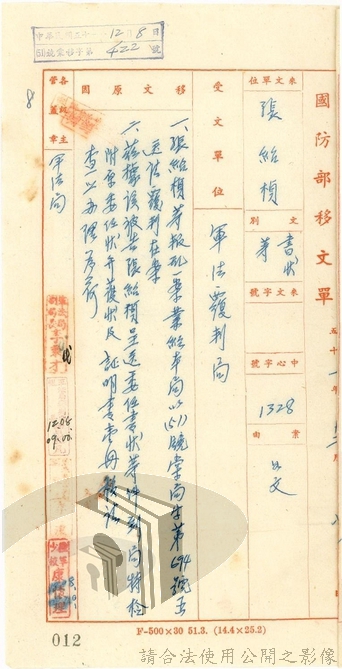 中華民國五十一年12月8日
51號棠發字第422號
國防部移文單
來文單位 張紹楨
文別 書狀等
來文字號
中心字號 1328
案由 公文
受文單位 軍法覆判局
移文原因
一、張紹楨等叛乱一案業經本局以(51)曉棠局字第694號呈
送請覆判在案
二、茲據該被告張紹楨呈送委任書狀等件到局特檢
附原委任狀
書狀及証明書壹冊移請
查照
各級主管蓋章 軍法局
8
12.08.
09.00.
012
F-500×30 51.3. (14.4×25.2)
請合法使用公開之影像